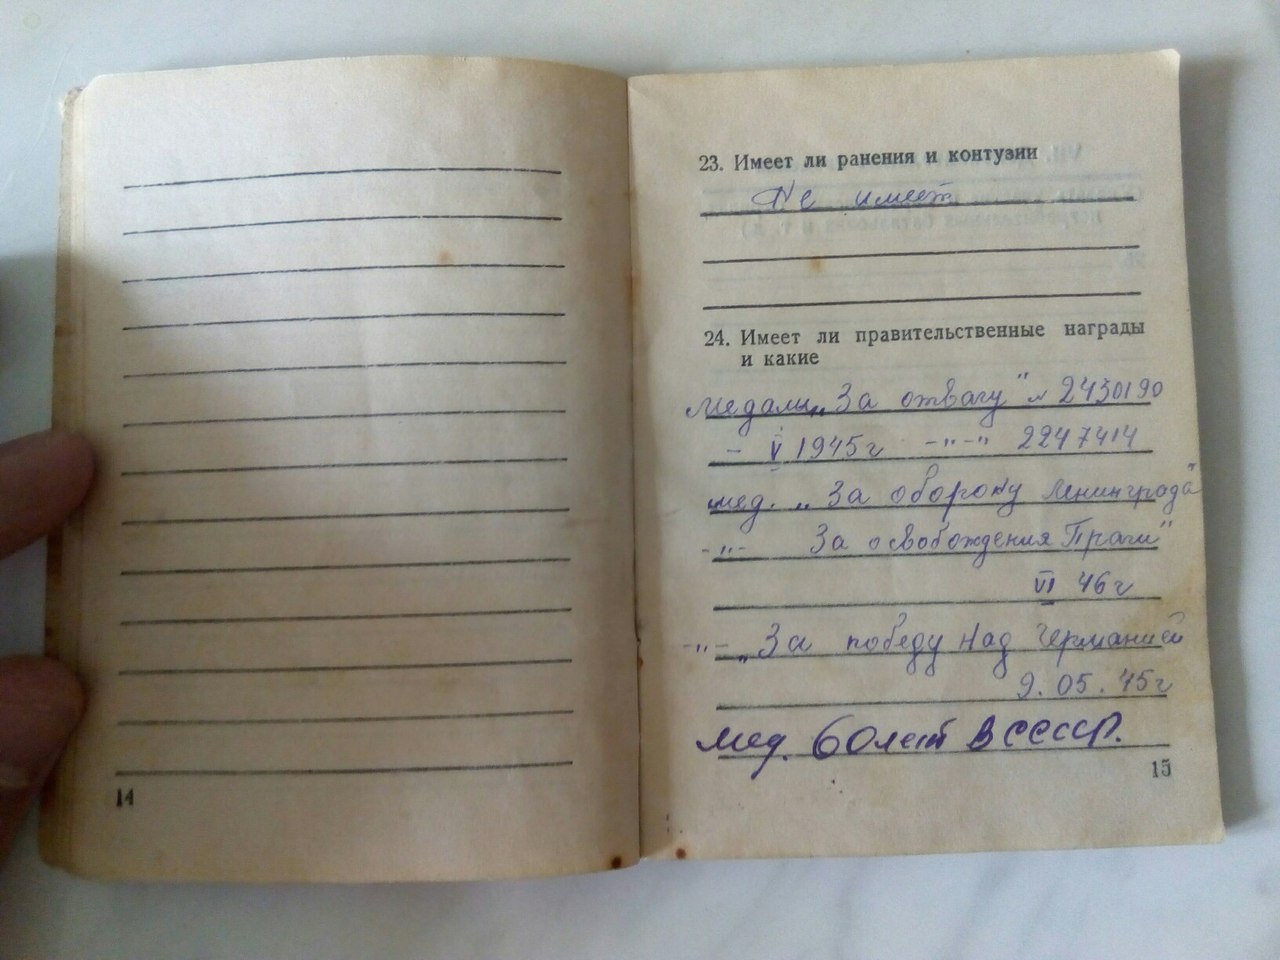 14
23. Имеет ли ранения и контузии
Не имеет
24. Имеет ли правительственные награды
и какие
Медаль „За отвагу" № 2430190
- V 1945г -"-"- 2247414
мед. „За оборону Ленинграда"
-"- За освобождения Праги"
VI 46г
-"- „За победу над Германией
9.05.45г
Мед. 60 лет В СССР.
15